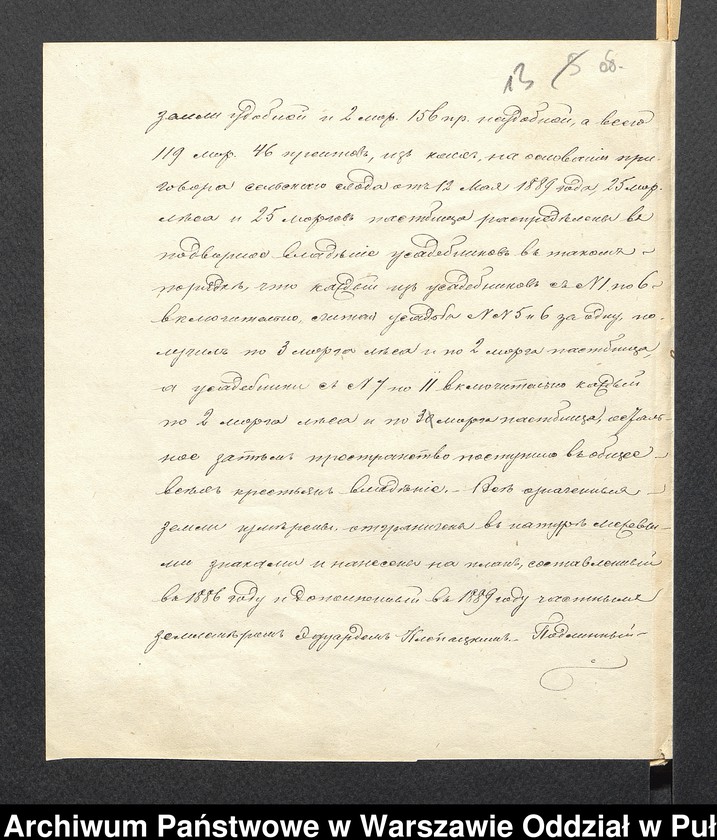 13 8 68.
земли удобной и 2 мор. 156 пр. неудобной, а всего
119 мор. 46 прентов, изъ коихъ, на основаніи при-
говора сельскаго схода отъ 12 Мая 1889 года, 25 мор.
лѣса и 25 морговъ пастбища распредѣлены въ
подворное владѣніе усадебниковъ въ такомъ
порядкѣ, что каждый изъ усадебниковъ съ N 1 по 6
включительно, считая усадьбы N N 5 и 6 за одну, по-
лучилъ по 3 морга лѣса и по 2 морга пастбища,
а усадебники съ N 7 по 11 включительно каждый
по 2 морга лѣса и по 3 морга пастбища, осталь-
ное затѣмъ пространство поступило въ общее
всѣхъ крестьянъ владѣніе. Всѣ означенныя
земли измѣрены, отграничены въ натурѣ межевы-
ми знаками и нанесены на планъ, составленный
въ 1886 году и дополненный въ 1889 году частнымъ
землемѣромъ Эдуардомъ Клопацкимъ. Подлинный
Archiwum Państwowe w Warszawie Oddział w Puł